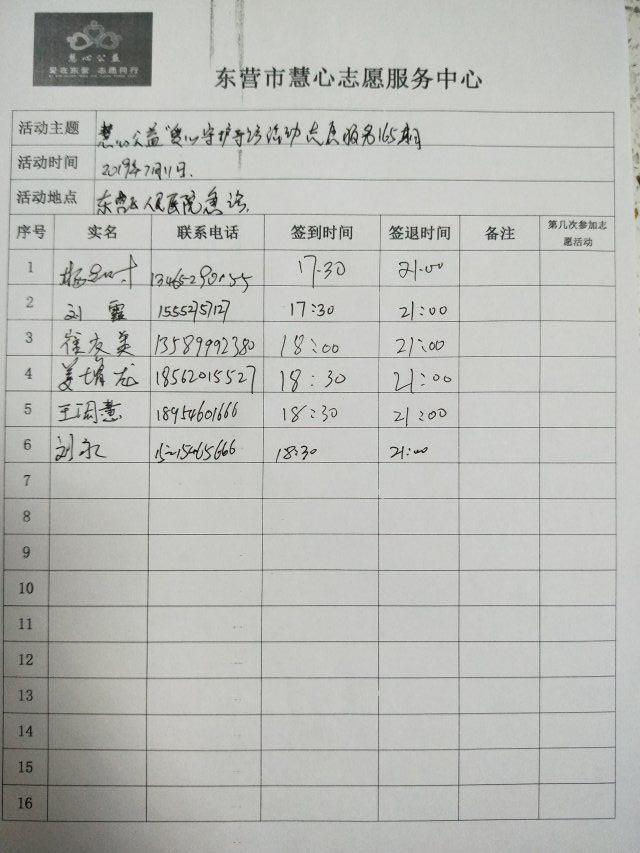 慧心公益
爱在东营 志愿同行
东营市慧心志愿服务中心
活动主题 慧心公益"爱心守护 活动志愿服务165期
活动时间 2019年7月11日.
活动地点 东营区人民医院急诊.
序号 实名 联系电话 签到时间 签退时间 备注 第几次参加志
愿活动
1 17.30 21.00
2 刘霞 15552757127 17:30 21:00
3 崔友美 13589992380 18:00 21:00
4 龙 18562015527 18:30 21:00
5 王润慧 18954601666 18:30 21:00
6 刘永 18:30 21:00
7
8
9
10
11
12
13
14
15
16